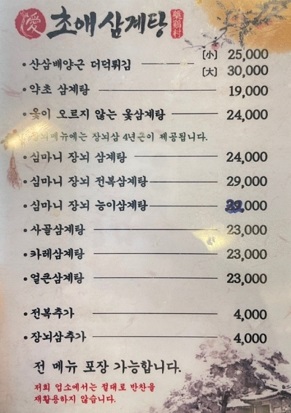 초애 삼계탕
[小] 25,000
• 산삼배양근 더덕튀김
[大] 30,000
• 약초 삼계탕 19,000
옻이 오르지 않는 옻삼계탕 24,000
메뉴에는 장뇌삼 4년근이 제공됩니다.
• 심마니 장뇌 삼계탕 24,000
• 심마니 장뇌 전복삼계탕 29,000
• 심마니 장뇌 능이삼계탕 ,000
• 사골삼계탕 23,000
• 카레삼계탕 23,000
• 얼큰삼계탕 23,000
• 전복추가 4,000
• 장뇌삼추가 4,000
전 메뉴 포장 가능합니다.
저희 업소에서는 절대로 반찬을
재활용하지 않습니다.